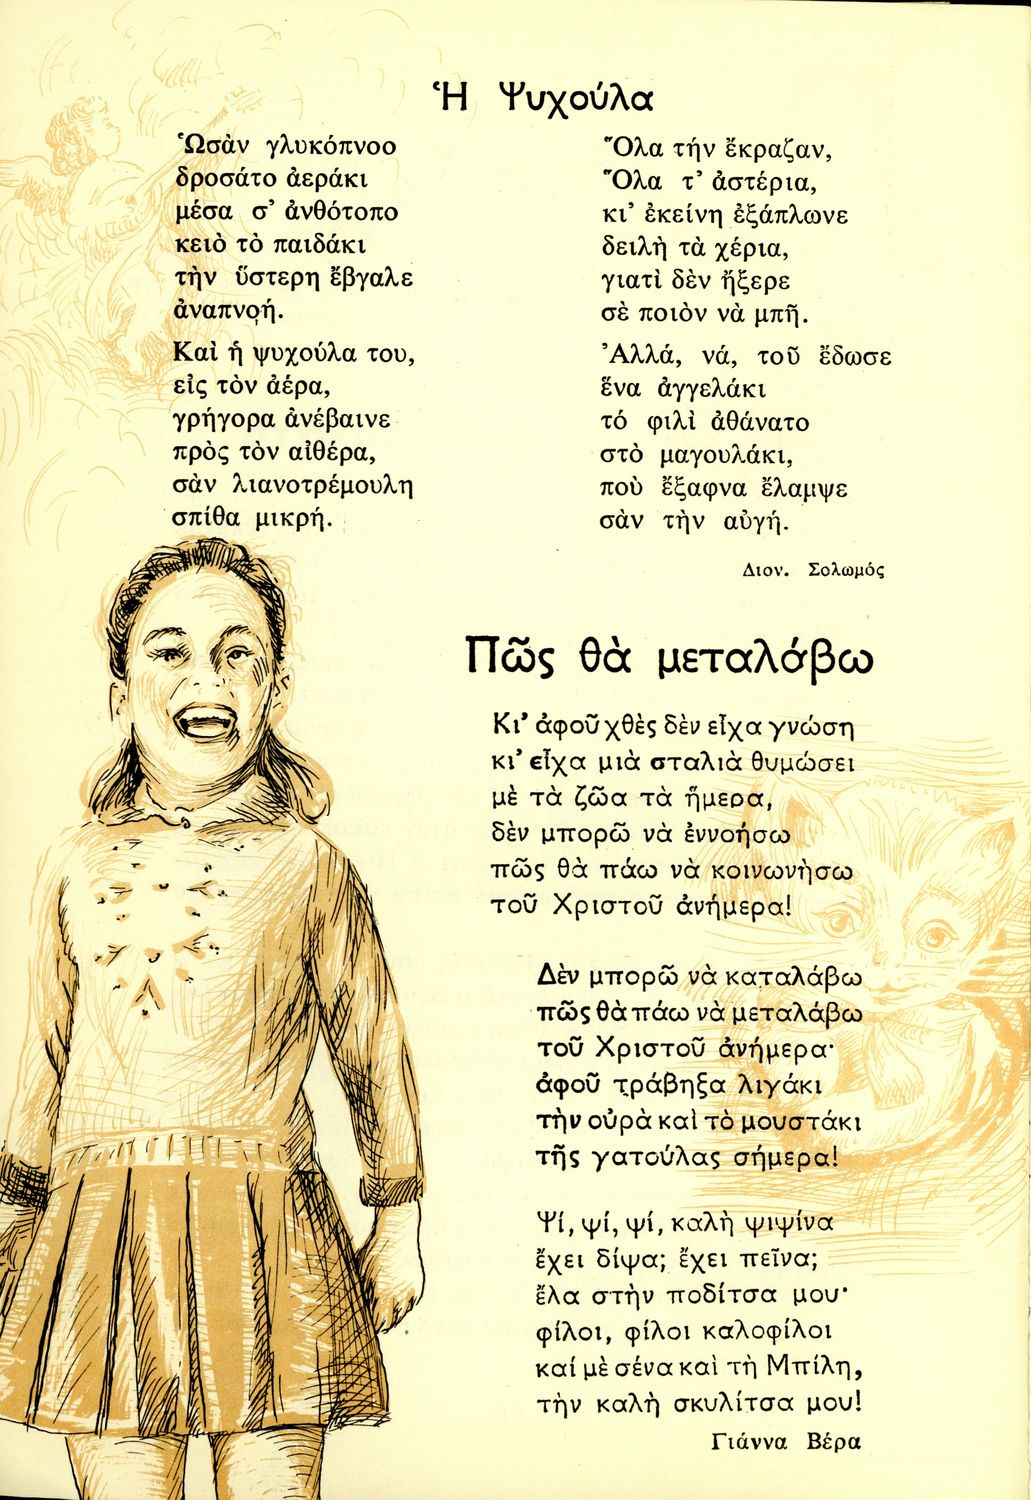 Ἡ Ψυχούλα
Ὡσὰν γλυκόπνοο
δροσάτο ἀεράκι
μέσα σ' ἀνθότοπο
κειὸ τὸ παιδάκι
τὴν ὕστερη ἔβγαλε
ἀναπνοή.
Καὶ ἡ ψυχούλα του,
εἰς τὸν ἀέρα,
γρήγορα ἀνέβαινε
πρὸς τὸν αἰθέρα,
σὰν λιανοτρέμουλη
σπίθα μικρή.
Ὅλα τήν ἔκραζαν,
Ὅλα τ' ἀστέρια,
κι' ἐκείνη ἐξάπλωνε
δειλὴ τὰ χέρια,
γιατὶ δὲν ἤξερε
σὲ ποιὸν νὰ μπῆ.
Ἀλλά, νά, τοῦ ἔδωσε
ἕνα ἀγγελάκι
τό φιλὶ ἀθάνατο
στὸ μαγουλάκι,
ποὺ ἔξαφνα ἔλαμψε
σὰν τὴν αὐγή.
Διον. Σολωμός
Πῶς θὰ μεταλάβω
Κι' ἀφοῦ χθὲς δὲν εἶχα γνώση
κι' εἶχα μιὰ σταλιὰ θυμώσει
μὲ τὰ ζῶα τὰ ἥμερα,
δὲν μπορῶ νὰ ἐννοήσω
πῶς θὰ πάω νὰ κοινωνὴσω
τοῦ Χριστοῦ ἀνήμερα!
Δὲν μπορῶ νὰ καταλάβω
πῶς θὰ πάω νὰ μεταλάβω
τοῦ Χριστοῦ ἀνήμερα·
ἀφοῦ τράβηξα λιγάκι
τὴν οὐρὰ καὶ τὸ μουστάκι
τῆς γατούλας σήμερα!
Ψί, ψί, ψί, καλὴ ψιψίνα
ἔχει δίψα; ἔχει πεῖνα;
ἔλα στὴν ποδίτσα μου·
φίλοι, φίλοι καλοφίλοι
καί μὲ σένα καὶ τὴ Μπίλη,
τὴν καλὴ σκυλίτσα μου!
Γιάννα Βέρα